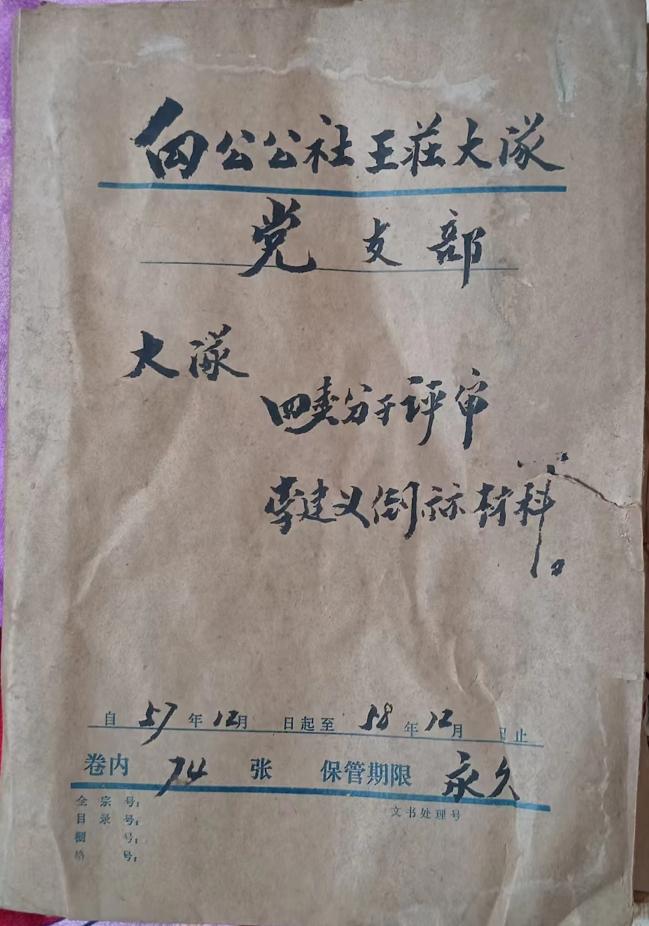 向公公社王莊大隊
党支部
大隊
四类分子评审
李建义倒示材料
自 57 年 12月 日起至 58 年 12月 日止
卷内 74 张 保管期限 永久
全宗号:
目录号: 文书处理号
橱号:
格号: